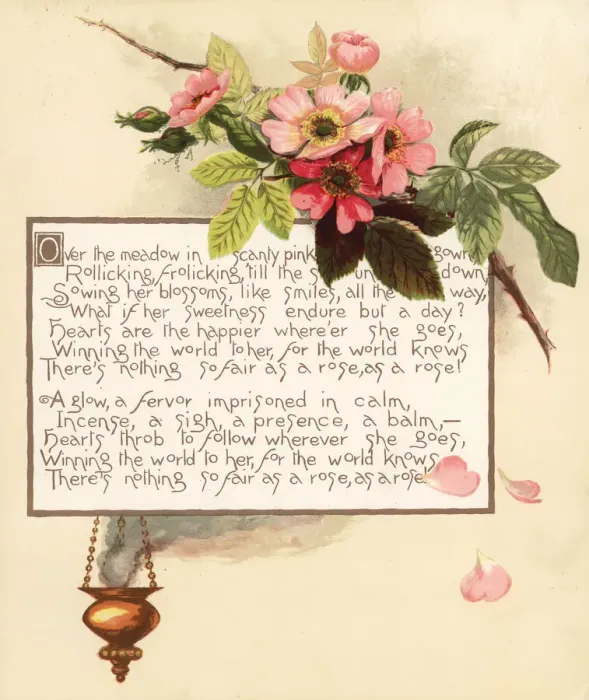 Over the meadow in scanty pink gown,
Rollicking, frolicking, till the s un down,
Sowing her blossoms, like smiles, all the way,
What if her sweetness endure but a day?
Hearts are the happier where'er she goes,
Winning the world to her, for the world knows
There's nothing so fair as a rose, as a rose!
A glow, a fervor imprisoned in calm,
Incense, a sigh, a presence, a balm,—
Hearts throb to follow wherever she goes,
Winning the world to her, for the world knows
There's nothing so fair as a rose, as a rose.